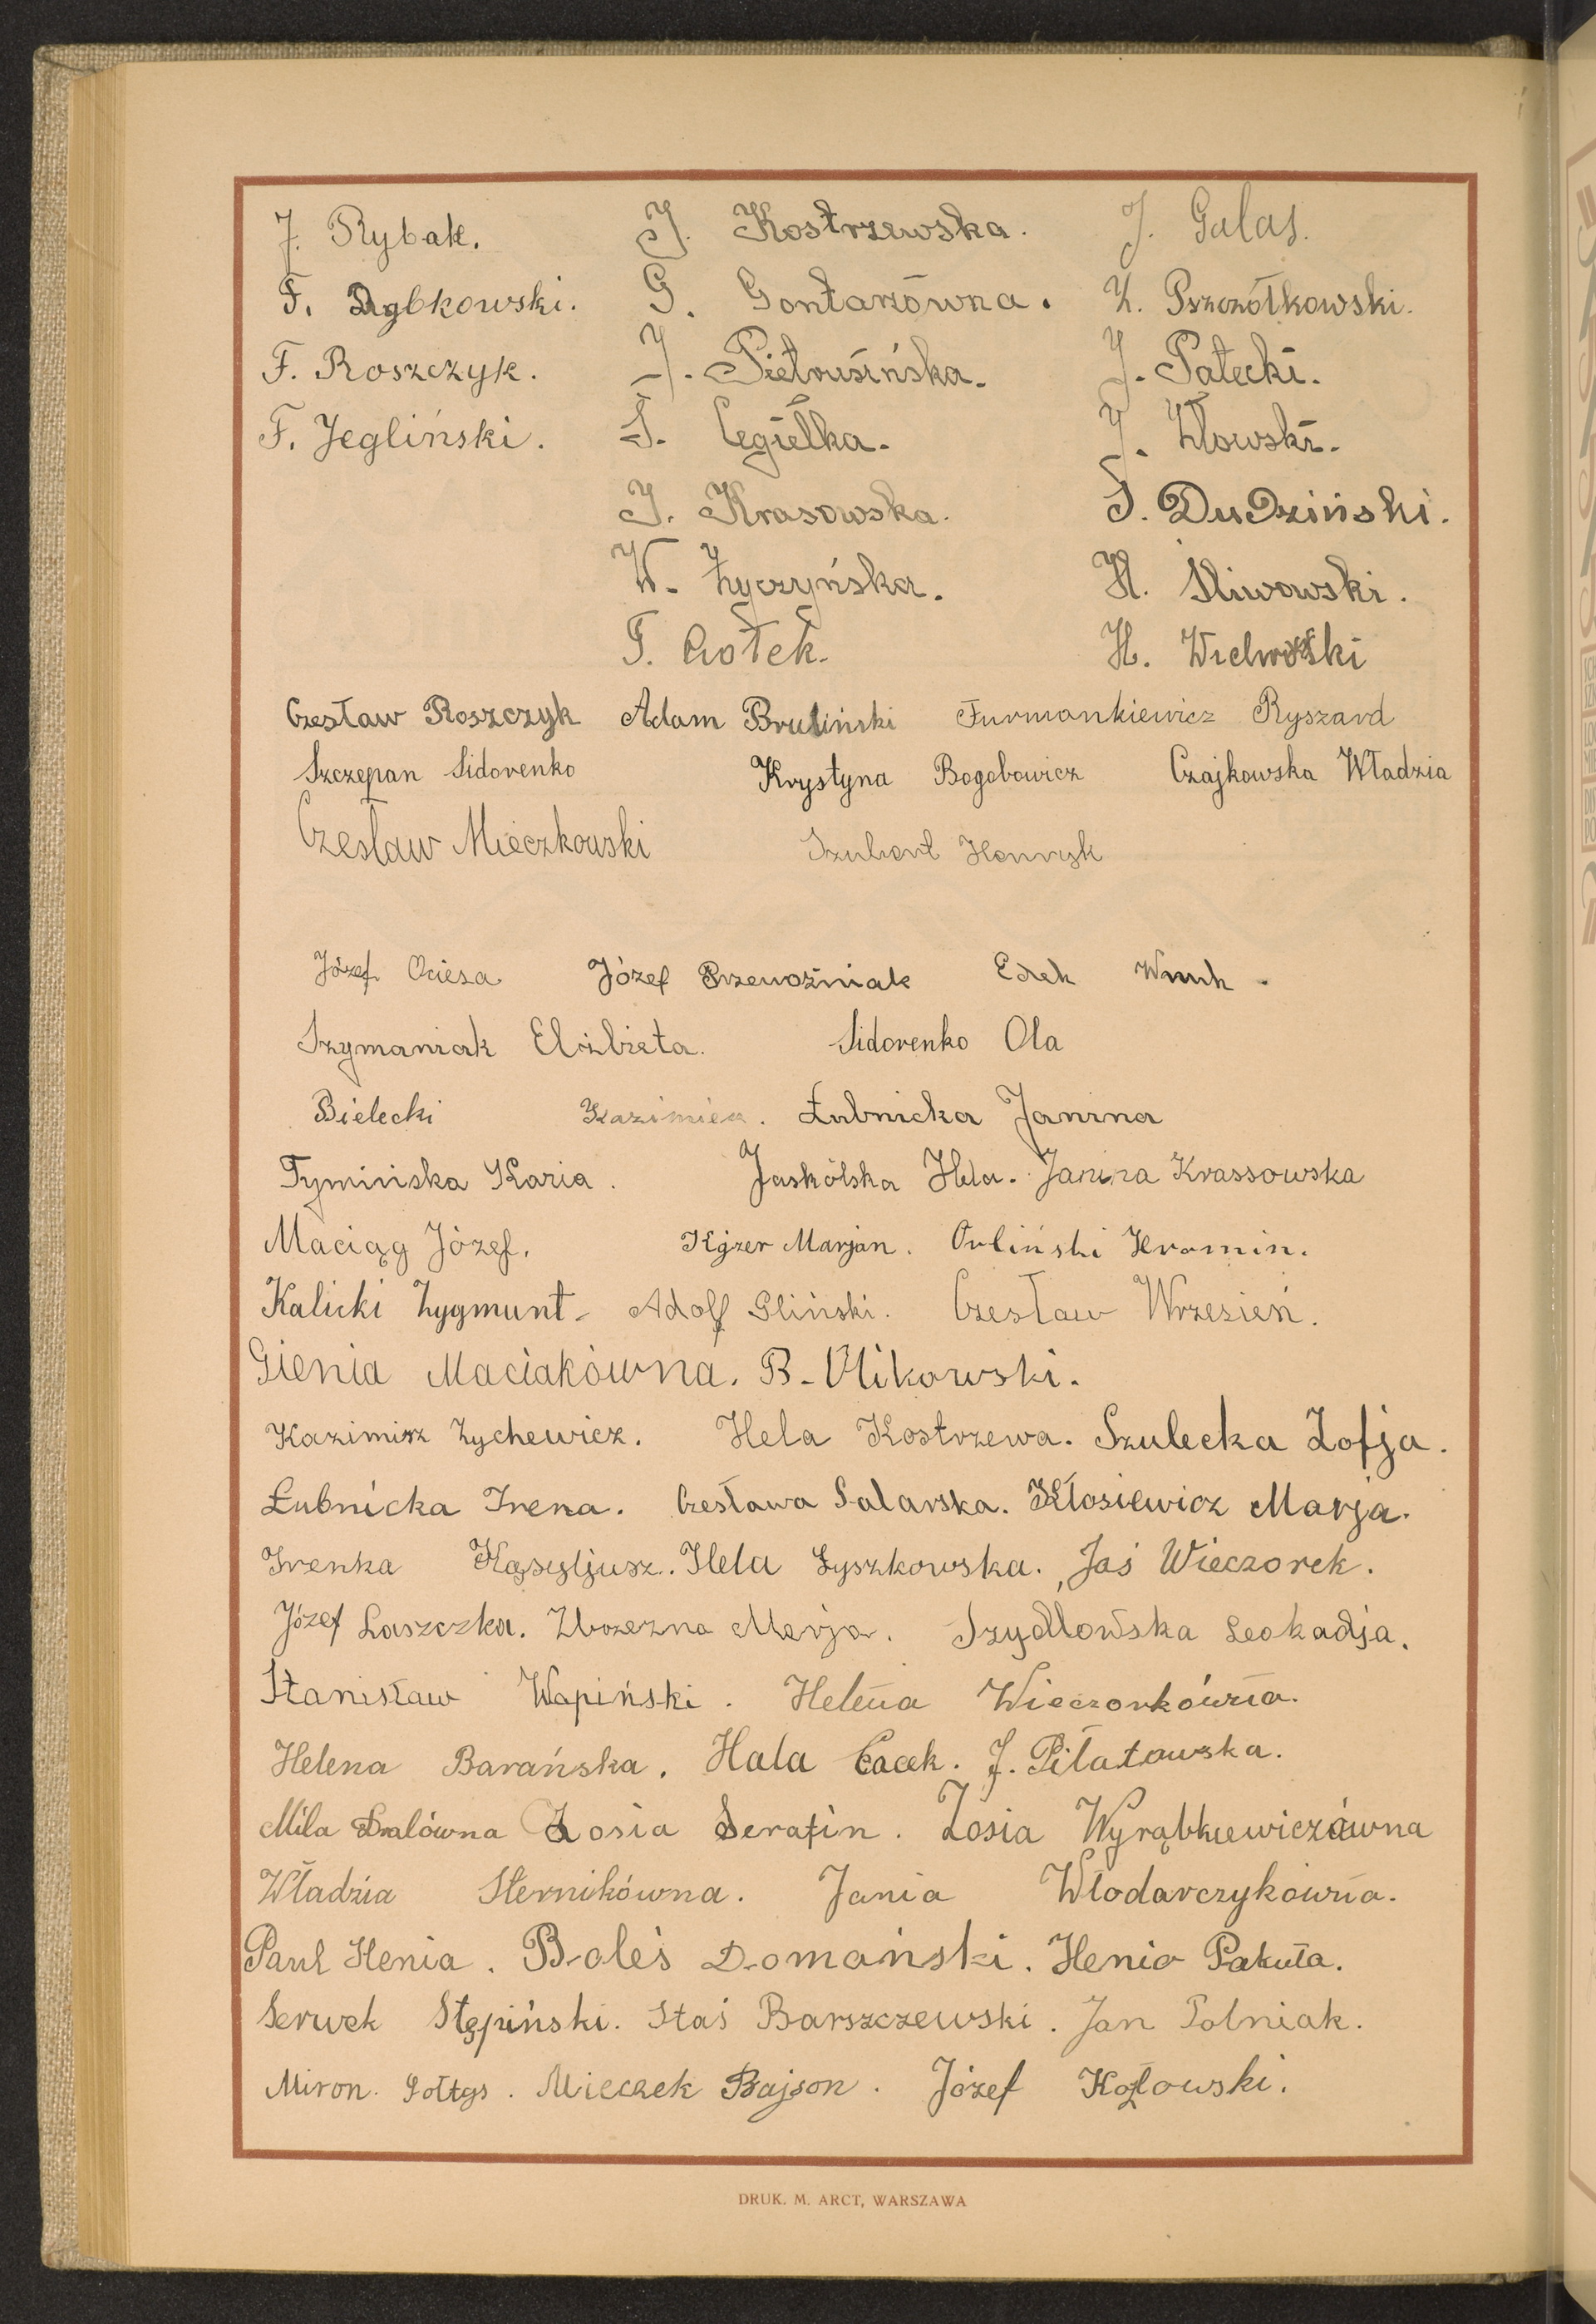 J. Rybak. J. Kostrzewska. J. Galas.
F. Dąbkowski. G. Gontarzówna. Z. Pszczółkowski.
F. Roszczyk. J. Pietrusińska. J. Pałecki.
F. Jegliński. S. Cegiełka. J.
J. Krasowska. S. Dudziński.
W. Życzyńska. H. Śliwowski.
T. Ciołek. H.
Czesław Roszczyk Adam Bruliński Furmankiewicz Ryszard
Szczepan Sidorenko Krystyna Bogobowicz Czajkowska Władzia
Czesław Mieczkowski Szubert Henryk
Józef Ociesa Józef Przewoźniak Edek Wnuk.
Szymaniak Elżbieta. Sidorenko Ola
Bielecki Kazimierz. Łubnicka Janina
Tymińska Kazia. Jaskólska Hela. Janina Krassowska
Maciąg Józef. Kizer Marjan. Orliński Hromin.
Kalicki Zygmunt. Adolf Gliński. Czesław Wrzesień.
Gienia Maciakówna. B. Olikowski.
Kazimirz Zychewicz. Hela Kostrzewa. Szulecka Zofja.
Łubnicka Irena. Czesława Salarska. Kłosiewicz Marja.
Irenka Hela Łyszkowska. Jaś Wieczorek.
Józef Laszczka. Marja. Szydłowska Leokadja.
Stanisław Wapiński. Helena Wieczorkówna.
Helena Barańska. Hala Cacek. J. Piłatowska.
Mila Dralówna Zosia Serafin. Zosia Wyrąbkiewiczówna
Władzia Sternikówna. Jania Włodarczykówna.
Paul Henia. Boleś Domański. Henio Pakuła.
Serwek Stępiński. Staś Barszczewski. Jan Polniak.
Miron. Sołtys. Mieczek Bajson. Józef Kozłowski.
DRUK. M. ARCT, WARSZAWA